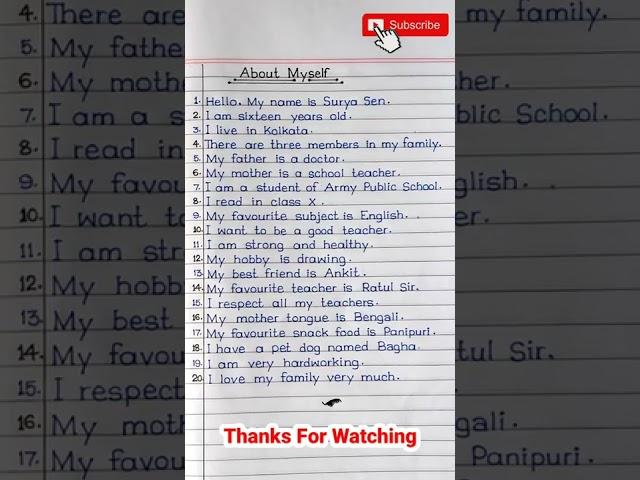 Subscribe
About Myself
1. Hello. My name is Surya Sen.
2. I am sixteen years old.
3. I live in Kolkata.
4. There are three members in my family.
5. My father is a doctor.
6. My mother is a school teacher.
7. I am a student of Army Public School.
8. I read in class X.
9. My favourite subject is English. .
10. I want to be a good teacher.
11. I am strong and healthy.
12. My hobby is drawing.
13. My best friend is Ankit.
14. My favourite teacher is Ratul Sir.
15. I respect all my teachers.
16. My mother tongue is Bengali.
17. My favourite snack food is Panipuri.
18. I have a pet dog named Bagha.
19. I am very hardworking.
20. I love my family very much.
Thanks For Watching
4. There are
5. My fathe
6. My moth
7. I am a s
8. I read in
9. My favou
10. I want t
11. I am str
12. My hobb
13. My best
14. My favou
15. I respect
16. My moth
17. My favou
my family.
her.
blic School.
glish. .
er.
tul Sir.
gali.
Panipuri.